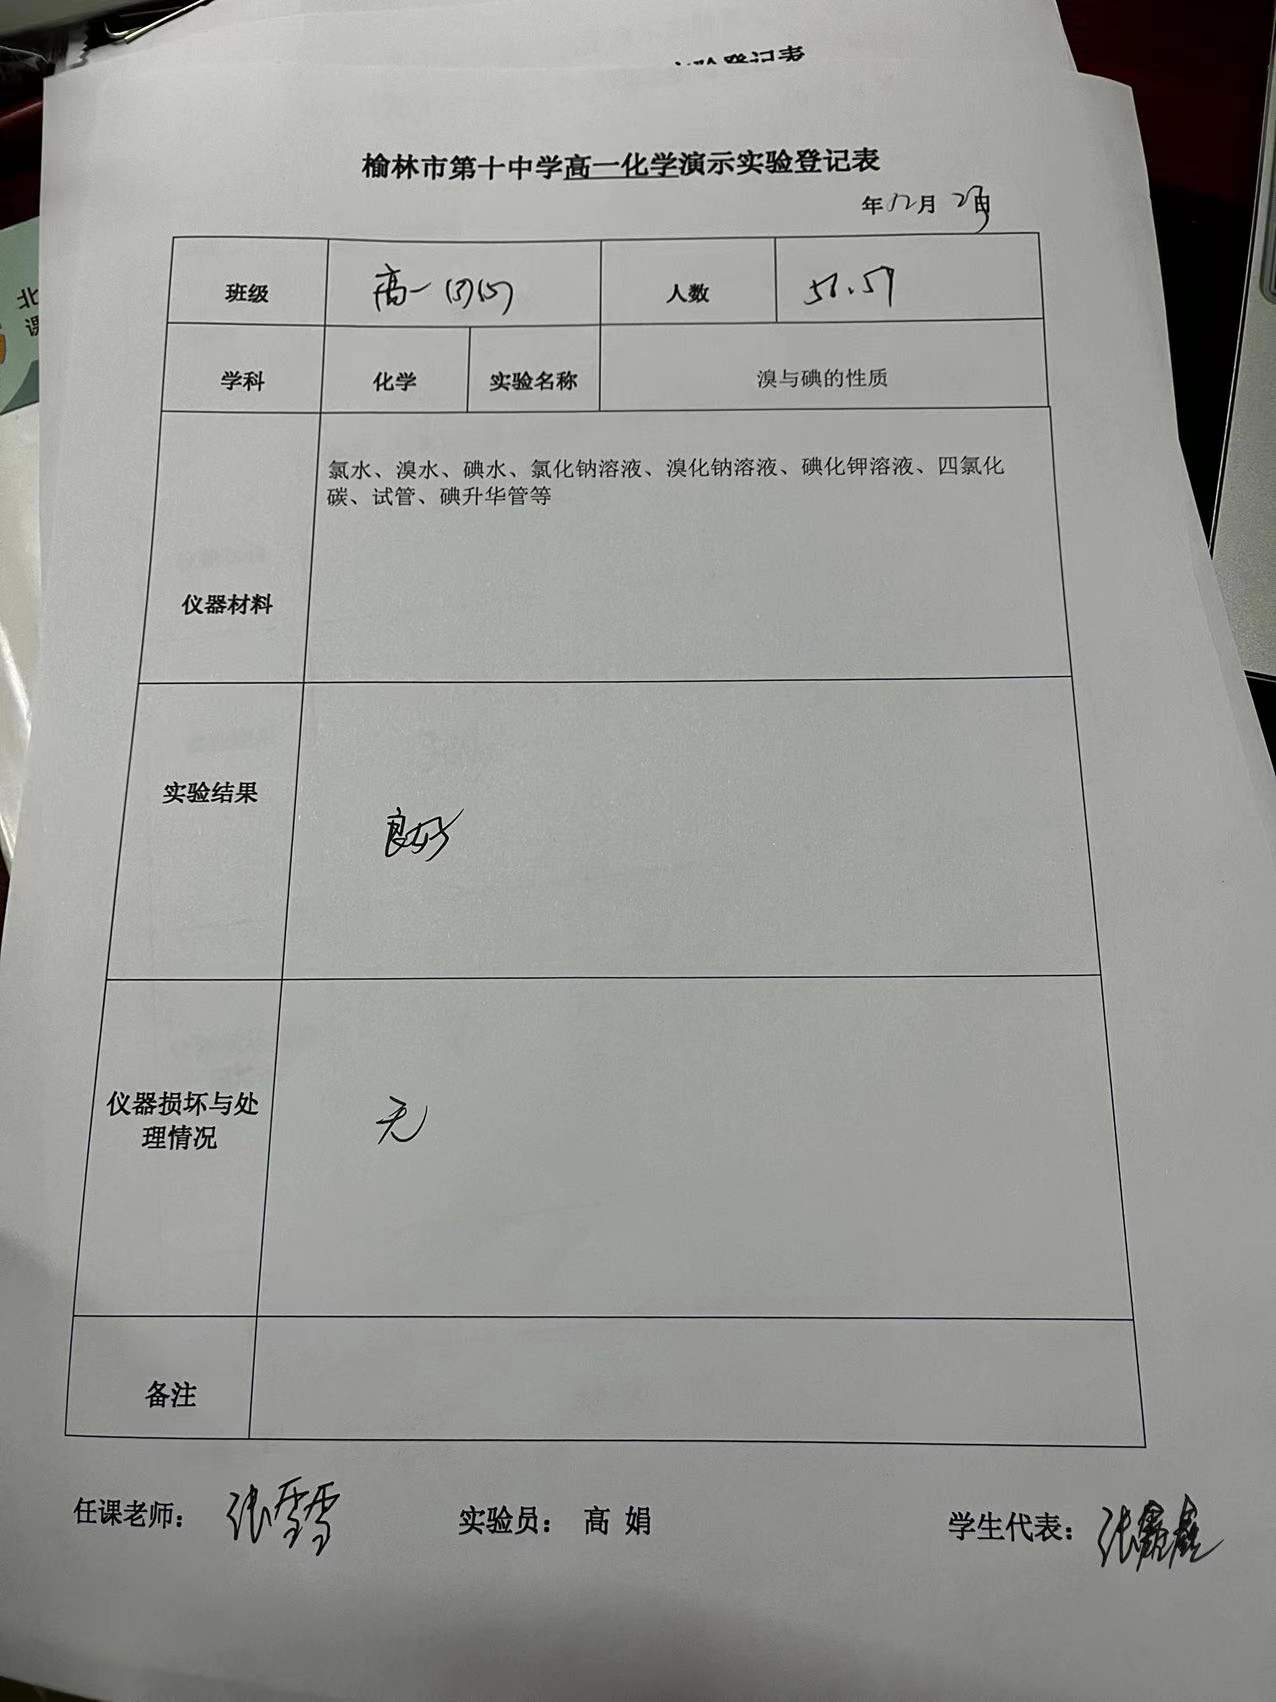 验登记表
榆林市第十中学高一化学演示实验登记表
年12月23日
北
课
班级 高一(3)(5) 人数
学科 化学 实验名称 溴与碘的性质
氯水、溴水、碘水、氯化钠溶液、溴化钠溶液、碘化钾溶液、四氯化
碳、试管、碘升华管等
仪器材料
实验结果 良好
仪器损坏与处
理情况
无
备注
任课老师： 张雪雪 实验员： 高 娟 学生代表： 张鑫鑫